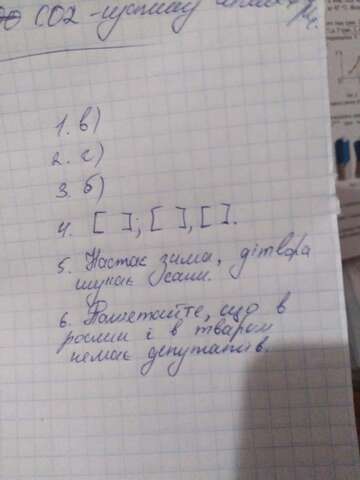 CO2 -
1. в)
2. г)
3. б)
4. [ ]; [ ], [ ].
5. Настає зима, дітвора
шукає сани.
6. Памєтайте, що в
рослин і в тварин
немає депутатів.